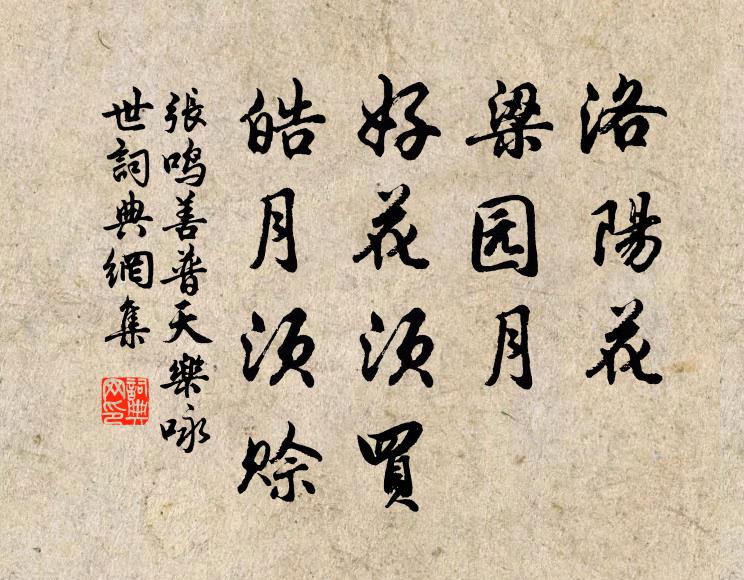 洛陽花
梁园月
好花須買
皓月須赊
張鸣善普天樂咏
世詞典網集
詞典
网印